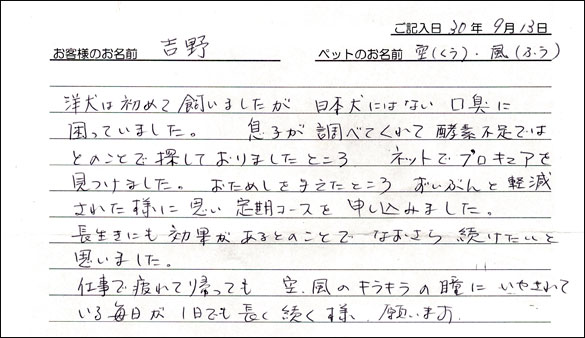 ご記入日 30年 9月 13日
お客様のお名前 吉野 ペットのお名前 空(くう)・風(ふう)
洋犬は初めて飼いましたが 日本犬にはない 口臭に
困っていました。 息子が調べてくれて酵素不足では
とのことで探しておりましたところ ネットでプロキュアを
見つけました。 おためしを与えたところ ずいぶんと軽減
された様に思い 定期コースを 申し込みました。
長生きにも効果があるとのことで なおさら 続けたいと
思いました。
仕事で疲れて帰っても 空、風のキラキラの瞳に いやされて
いる毎日が 1日でも長く続く様、願います